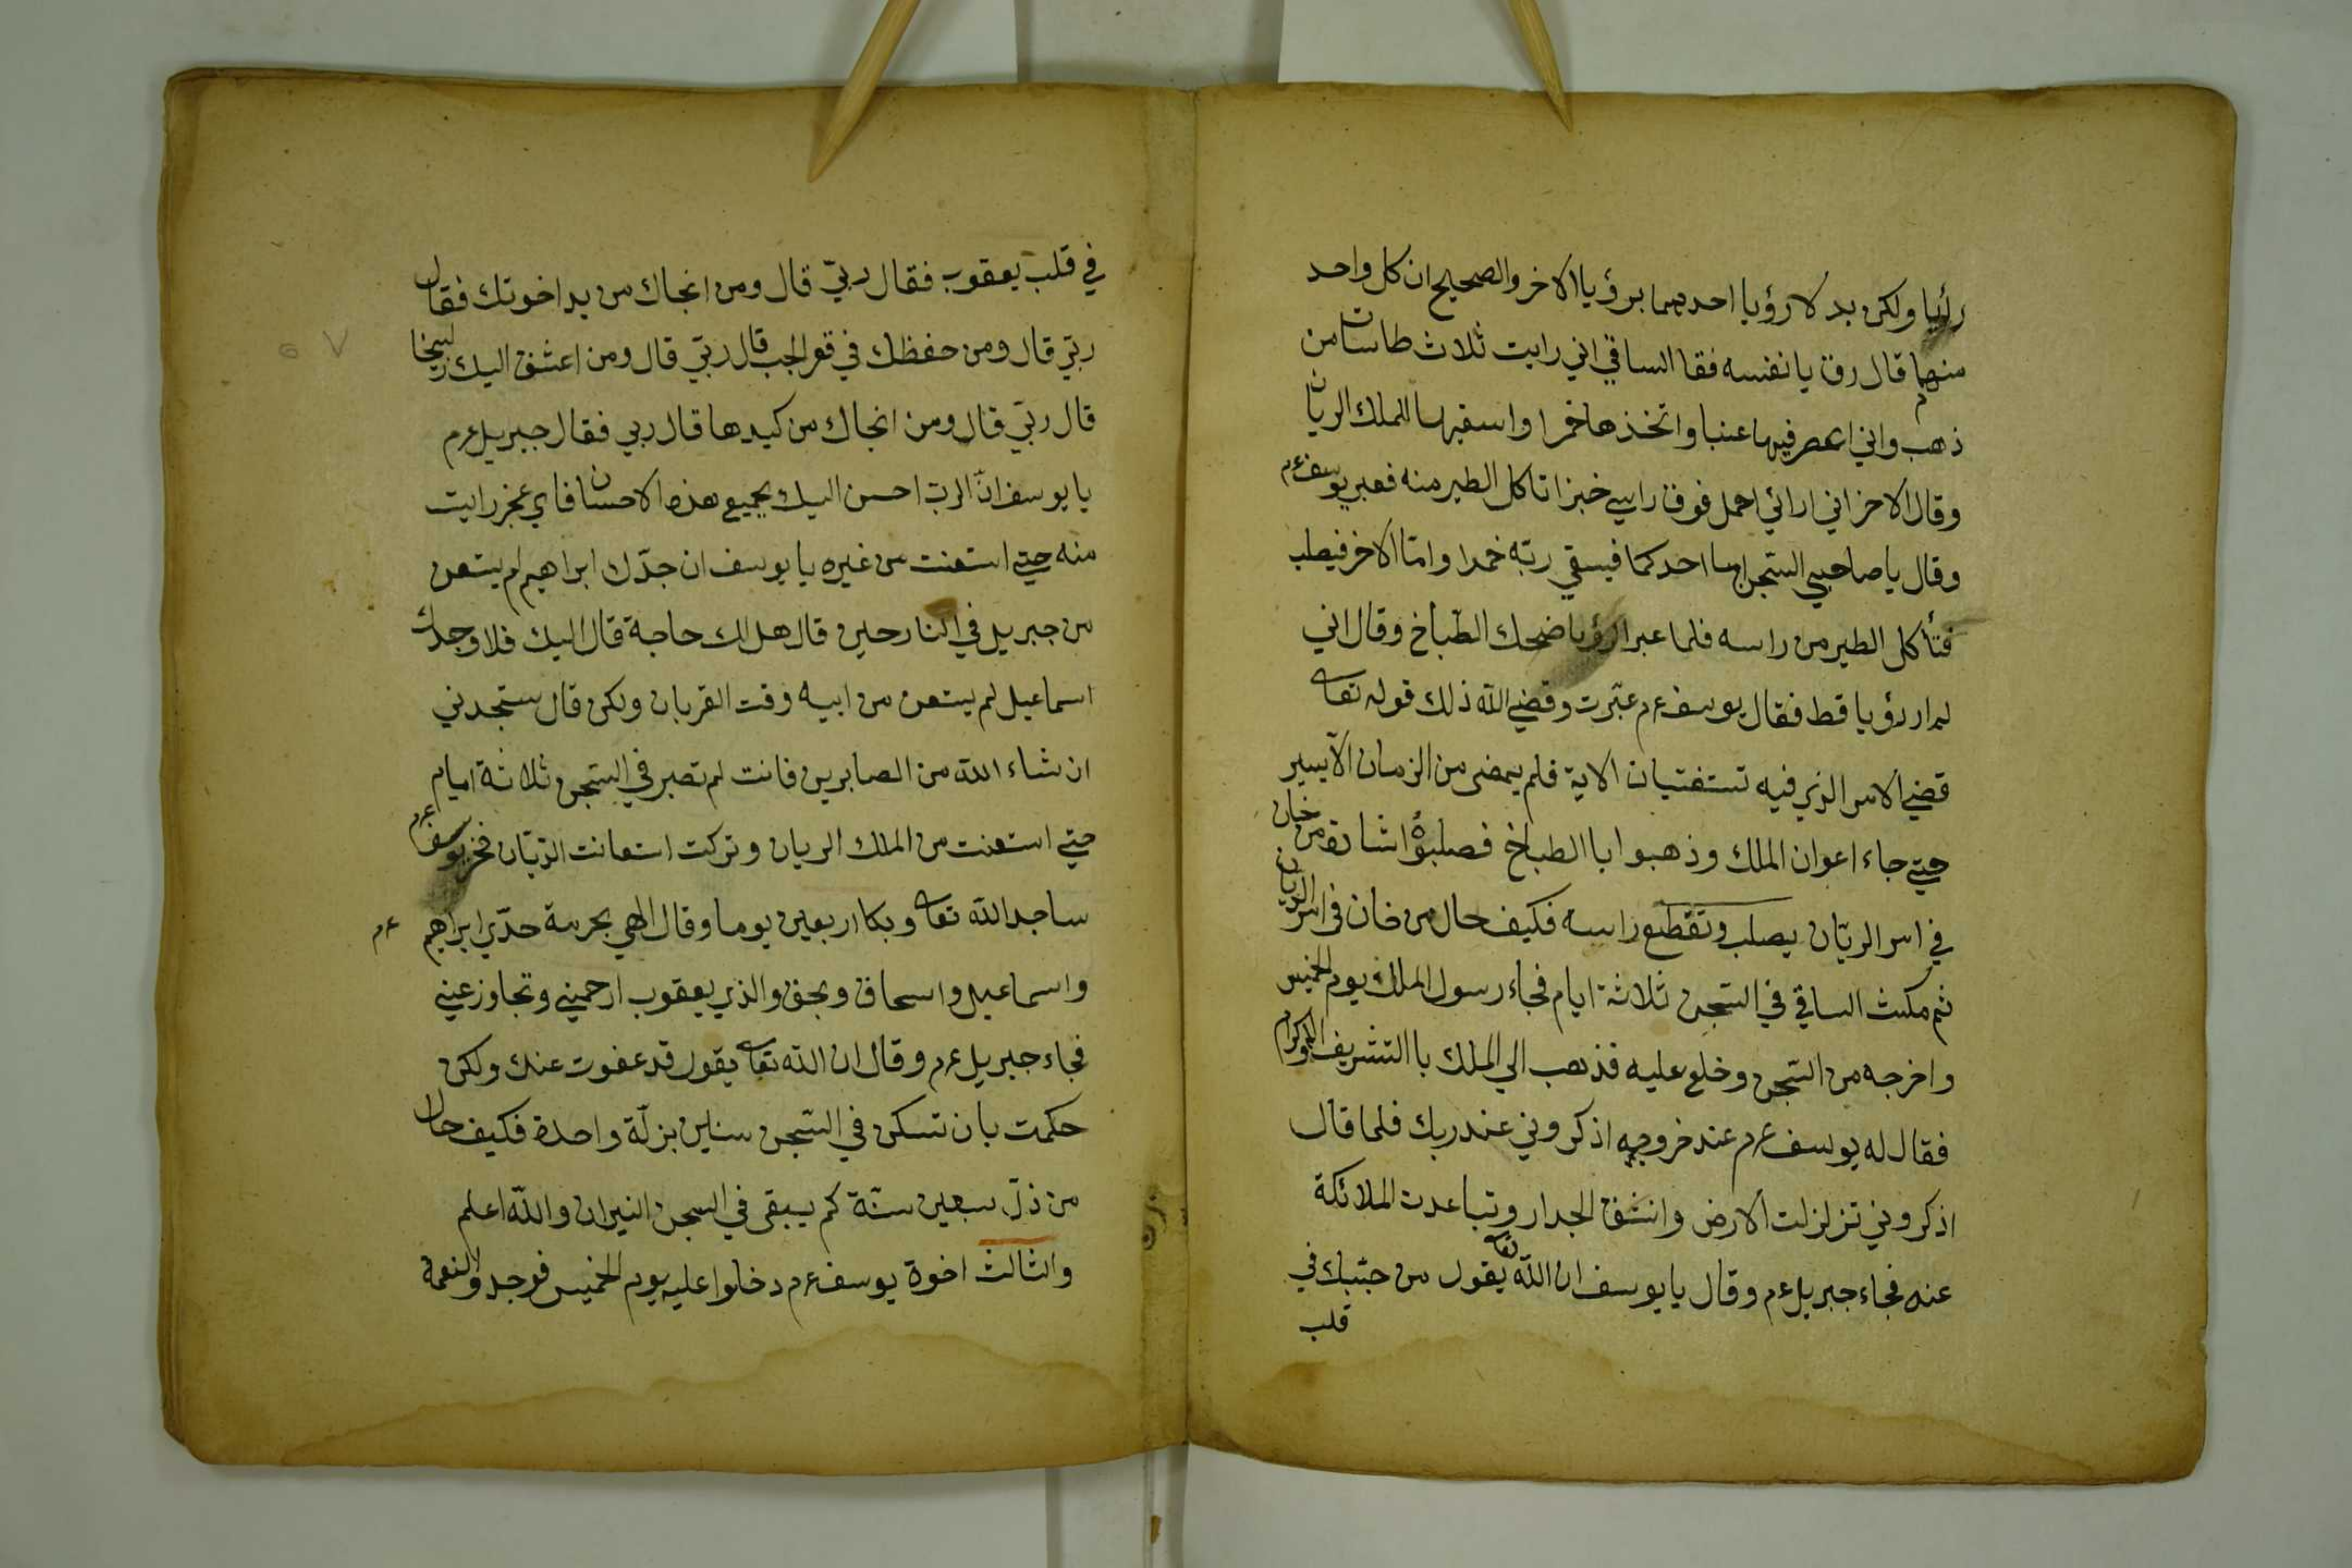 رأيا ولكن بدلا رؤيا احديهما برؤيا الاخر والصحيح ان كل واحد
منهما قال رؤيا نفسه فقا الساقي اني رايت ثلاث طاسات من
ذهب واني اعصر فيها عنبا واتخذها خمرا واسقيها الملك الريان
وقال الاخر اني ارائي احمل فوق راسي خبزا تاكل الطير منه فعبر يوسف عم
وقال يا صاحبي السجن اما احدكما فيسقي ربه خمرا واما الاخر فيصلب
فتأكل الطير من راسه فلما عبر الرؤيا ضحك الطباخ وقال اني
لم ار رؤيا قط فقال يوسف عم عبّرت وقضي الله ذلك قوله تعا
قضي الامر الذي فيه تستفتيان الاية فلم يمضى من الزمان الا يسير
حتي جاء اعوان الملك وذهبوا با الطباخ فصلبوٴا اشارة من خان
في امر الريّان يصلب وتقطع راسه فكيف حال من خان في امر الريان
ثم مكث الساقي في السّجن ثلاثة ايام فجاء رسول الملك يوم الخميس
واخرجه من السّجن وخلع عليه فذهب الي الملك با التشريف والاكرام
فقال له يوسف عم عند خروجه اذكروني عند ربك فلما قال
اذكروني تزلزلت الارض وانشق الجدار وتباعدت الملائكة
عنه فجاء جبريل عم وقال يا يوسف ان الله تعا يقول من حبّبك في
قلب
في قلب يعقوب فقال ربّي قال ومن انجاك من يد اخوتك فقال
ربّي قال ومن حفظك في قعر الجب قال ربّي قال ومن اعشق اليك زليخا
قال ربّي قال ومن انجاك من كيدها قال ربي فقال جبريل عم
يا يوسف انّ الربّ احسن اليك بجميع هذه الاحسان فاي عجز رايت
منه حتي استعنت من غيره يا يوسف ان جدّك ابراهيم لم يستعن
من جبريل في النار حين قال هل لك حاجة قال اليك فلا وجدك
اسماعيل لم يستعن من ابيه وقت القربان ولكن قال ستجدني
ان شاء الله من الصابرين فانت لم تصبر في السّجن ثلاثة ايام
حتي استعنت من الملك الريان وتركت استعانت الديّان فخر يوسف عم
ساجد الله تعا وبكا اربعين يوما وقال الهي بحرمة جدّي ابراهيم عم
واسماعيل واسحاق وبحق والذي يعقوب ارحمني وتجاوز عني
فجاء جبريل عم وقال ان الله تعا يقول قد عفوت عنك ولكن
حكمت بان تسكن في السّجن سنين بزلّة واحدة فكيف حال
من ذلّ سبعين سنّة كم يبقى في السجن النيران والله اعلم
والثالث اخوة يوسف عم دخلوا عليه يوم الخميس فوجدوا النعمة